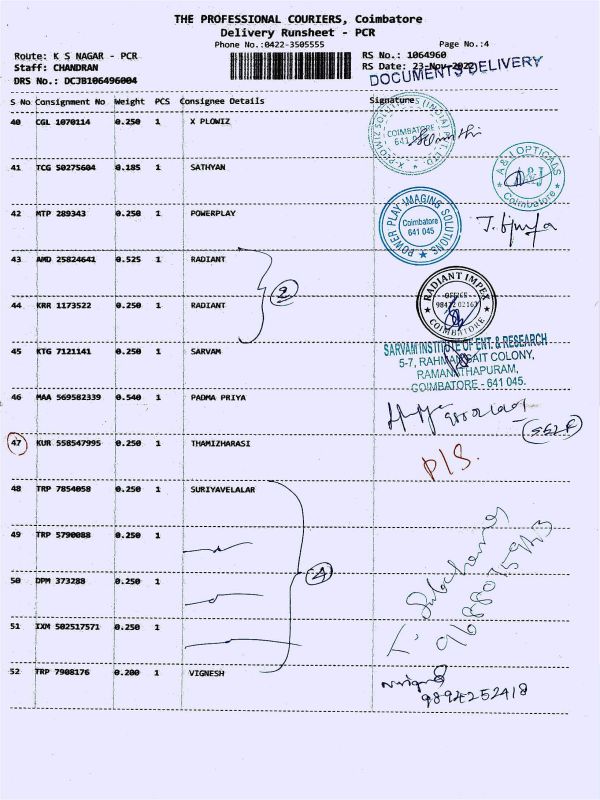 THE PROFESSIONAL COURIERS, Coimbatore
Delivery Runsheet - PCR
Phone No.:0422-3505555
Page No.:4
Route: K S NAGAR - PCR
RS No.: 1064960
Staff: CHANDRAN
RS Date: 23-Nov-2022
DOCUMENTS DELIVERY
DRS No.: DCJB106496004
S No Consignment No Weight PCS Consignee Details Signature
40 CGL 1070114 0.250 1 X PLOWIZ
X-PLOWIZ SOLUTIONS (INDIA) PVT. LTD.
COIMBATORE
641
41 TCG 50275604 0.185 1 SATHYAN
A & J OPTICALS
A&J
Coimbatore
42 MTP 289343 0.250 1 POWERPLAY
POWER PLAY IMAGING SOLUTIONS
Coimbatore
641 045
43 AMD 25824641 0.525 1 RADIANT
2
44 KRR 1173522 0.250 1 RADIANT
RADIANT IMPEX
OFFICE
COIMBATORE
45 KTG 7121141 0.250 1 SARVAM
SARVAM INSTITUTE OF ENT. & RESEARCH
5-7, RAHMANSAIT COLONY,
RAMANATHAPURAM,
COIMBATORE - 641 045.
46 MAA 569582339 0.540 1 PADMA PRIYA
47 KUR 558547995 0.250 1 THAMIZHARASI
P/S.
48 TRP 7854058 0.250 1 SURIYAVELALAR
49 TRP 5790088 0.250 1
4
50 DPM 373288 0.250 1
51 IXM 502517571 0.250 1
52 TRP 7908176 0.200 1 VIGNESH
9894252418